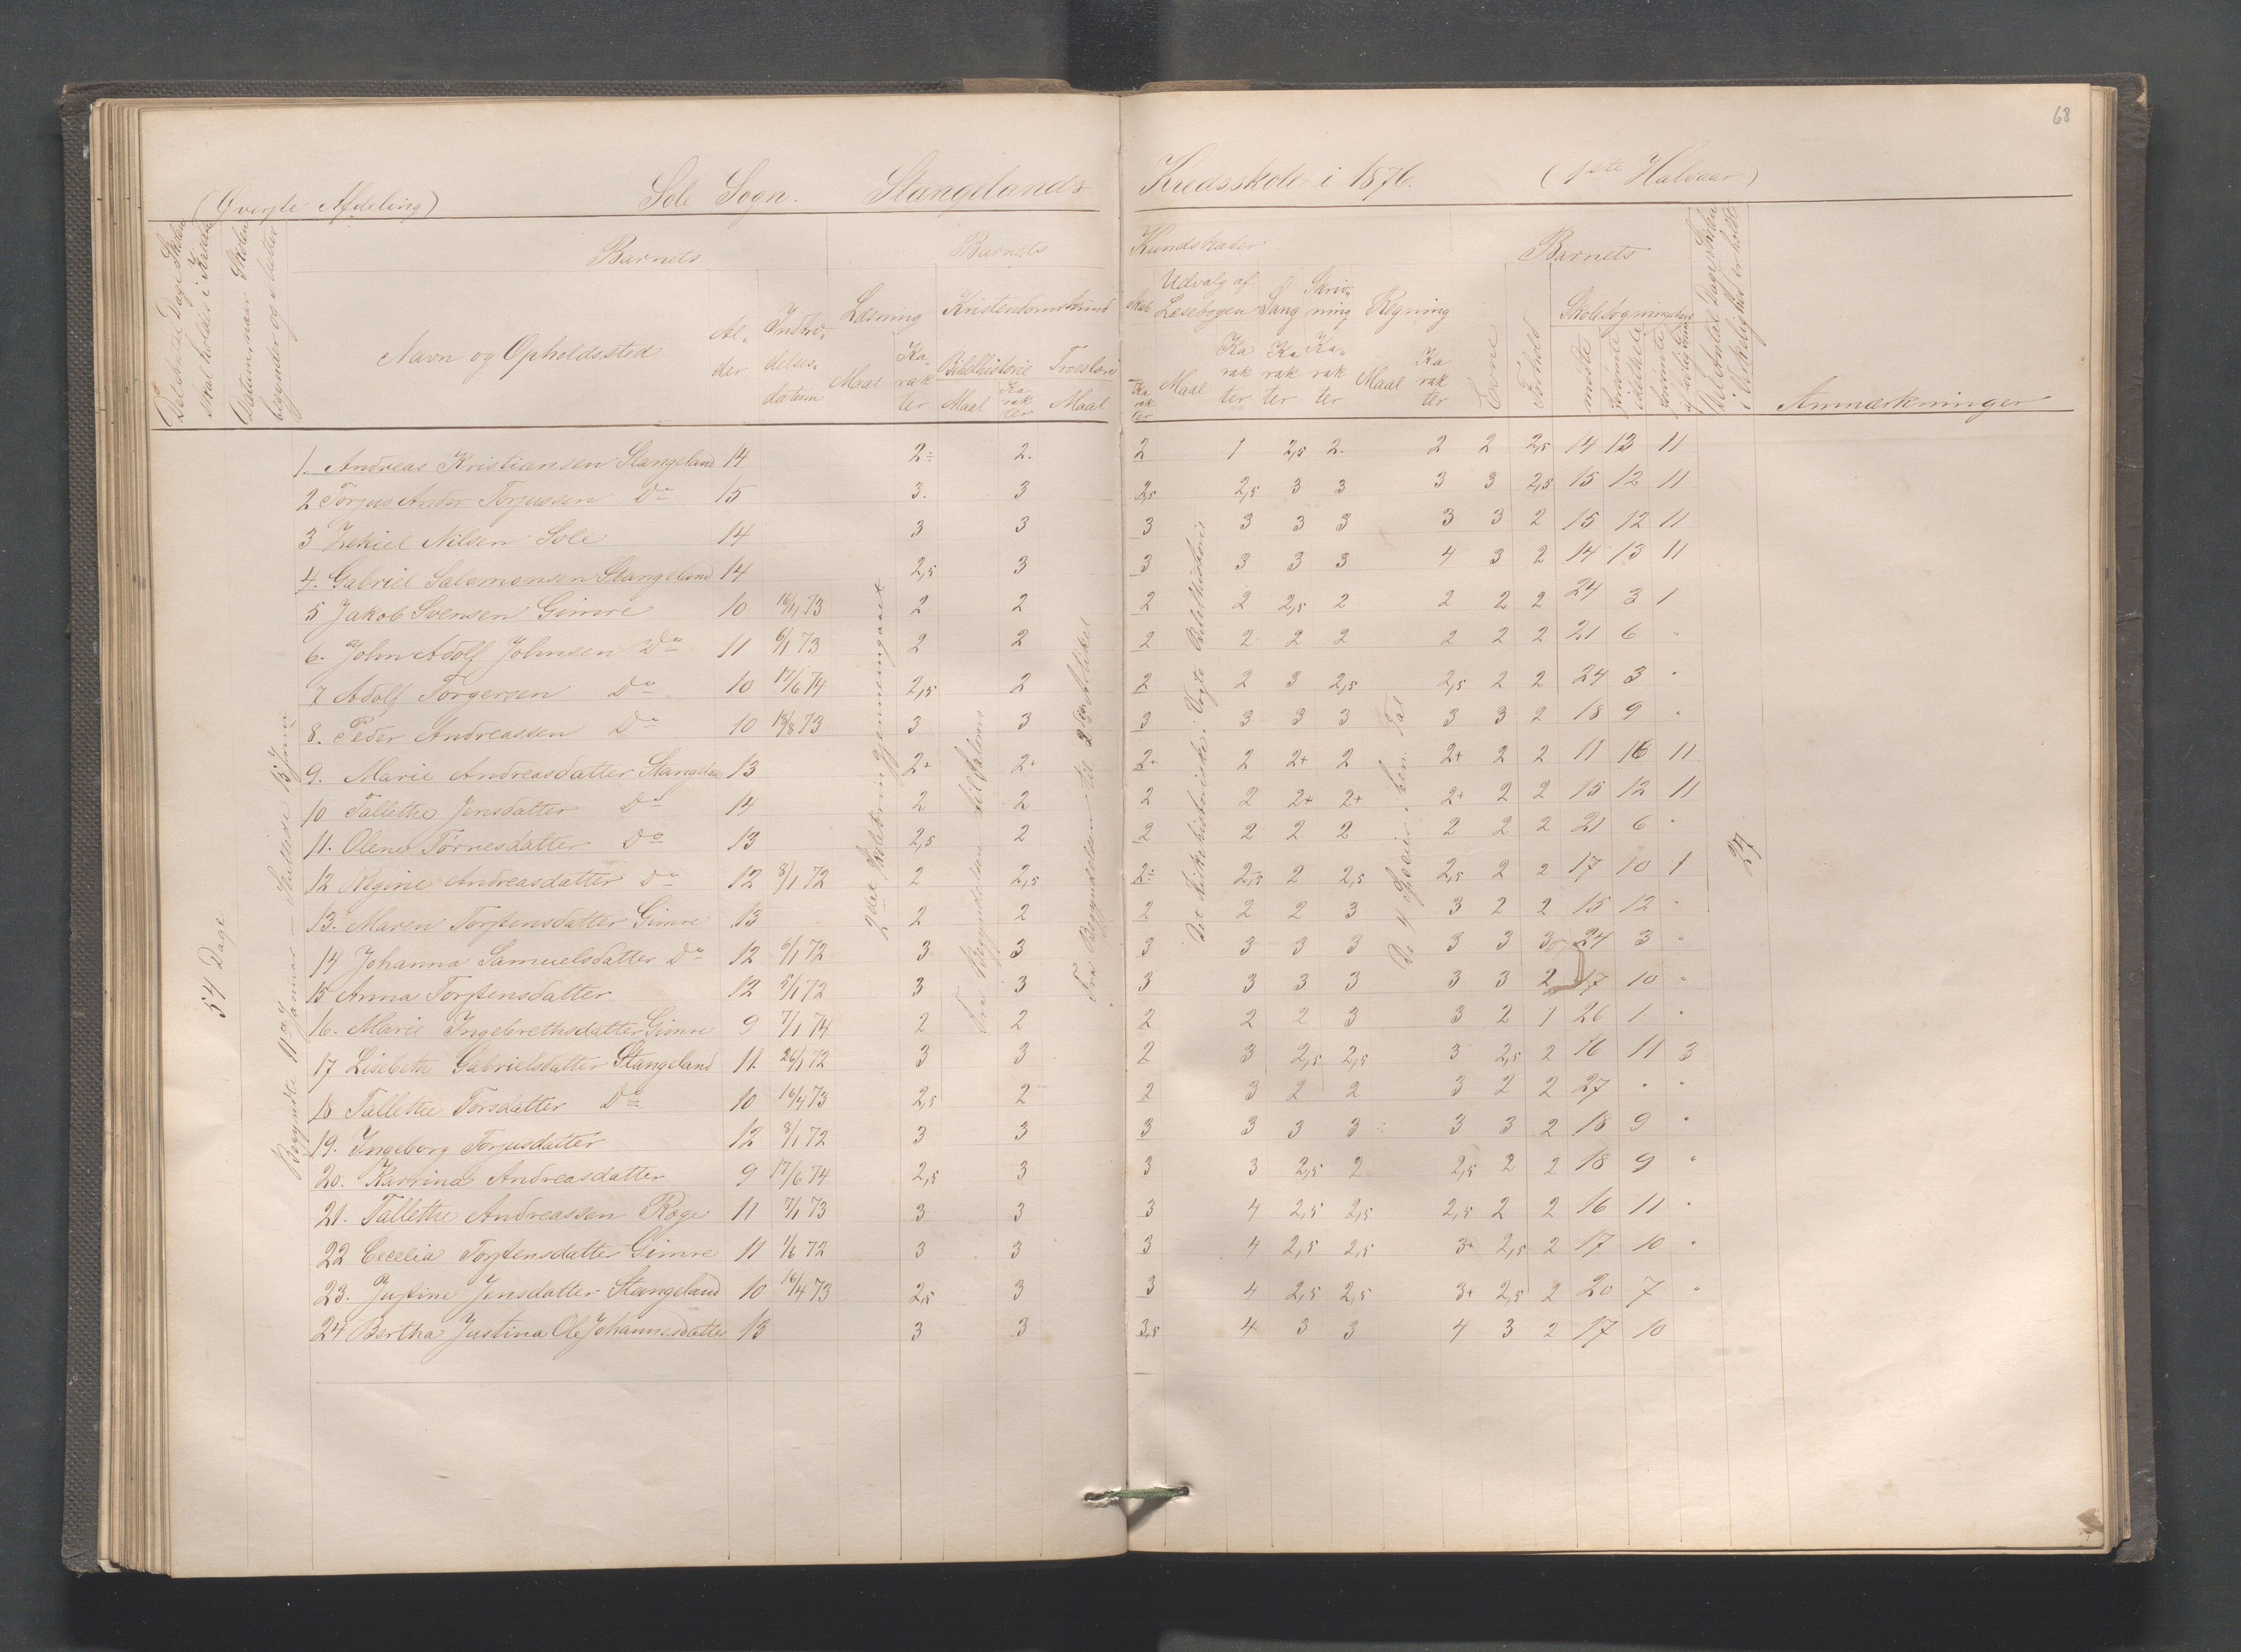 68
(Øverste Afdeling) Sole Sogn. Stangelands Kredsskole i 1876. (1ste Halvaar)
Barnets Barnets Kundskaber Barnets
Det Antal Dage Skolen skal holdes i Kredsen
Datum, naar Skolen begynder og slutter
Navn og Opholdssted
Alder
Indtrædelsesdatum
Læsning Maal Karakter
Kristendomskundskab
Bibelhistorie Maal Karakter
Troeslære Maal Karakter
Udvalg af Læsebogen Maal Karakter
Sang Karakter
Skrivning Karakter
Regning Maal Karakter
Evne
Forhold
Skolesøgningsdage
mødte
forsømte i det Hele
forsømte af lovlig Grund
Det Antal Dage Skolen i Virkelighed er holdt
Anmærkninger
54 Dage
Begyndte 11te Januar — Sluttede 15 Juni
2det Skoletrin gjennemgaaet
Fra Begyndelsen til Salomo
Fra Begyndelsen til 2den Artikel
Det Kirkehistoriske i Vogts Bibelhistorie
De 4 Specier i hen. Tal
27
1. Andreas Kristiansen Stangeland 14 2÷ 2. 2 1 2,5 2. 2 2 2,5 14 13 11
2 Torjus Ander Torjussen Do 15 3. 3 2,5 2,5 3 3 3 3 2,5 15 12 11
3 Zekiel Nilsen Sole 14 3 3 3 3 3 3 3 3 2 15 12 11
4. Gabriel Salomonsen Stangeland 14 2,5 3 3 3 3 3 4 3 2 14 13 11
5 Jakob Svensen Gimre 10 16/4 73 2 2 2 2 2,5 2 2 2 2 24 3 1
6. John Adolf Johnsen Do 11 6/1 73 2 2 2 2 2 2 2 2 2 21 6 "
7 Adolf Torgersen Do 10 17/6 74 2,5 2 2 2 3 2,5 2,5 2 2 24 3 "
8. Peder Andreassen Do 10 18/8 73 3 3 3 3 3 3 3 3 2 18 9 "
9. Marie Andreasdatter Stangeland 13 2+ 2+ 2+ 2 2+ 2 2+ 2 2 11 16 11
10 Tallethe Jensdatter Do 14 2 2 2 2 2+ 2+ 2+ 2 2 15 12 11
11. Olene Tørnesdatter Do 13 2,5 2 2 2 2 2 2 2 2 21 6 "
12 Regine Andreasdatter Do 12 8/1 72 2 2,5 2÷ 2,5 2 2,5 2,5 2 2 17 10 1
13. Maren Torstensdatter Gimre 13 2 2 2 2 2 3 3 2 2 15 12 "
14 Johanna Samuelsdatter Do 12 6/1 72 3 3 3 3 3 3 3 3 3 24 3 "
15 Anna Torstensdatter 12 5/1 72 3 3 3 3 3 3 3 3 2 17 10 "
16. Marie Ingebrethsdatter Gimre 9 7/1 74 2 2 2 2 2 3 3 2 1 26 1 "
17 Lisbeth Gabrielsdatter Stangeland 11. 26/1 72 3 3 2 3 2,5 2,5 3 2,5 2 16 11 3
18 Tallethe Torsdatter Do 10 16/4 73 2,5 2 2 3 2 2 3 2 2 27 " "
19. Ingeborg Torjusdatter 12 8/1 72 3 3 3 3 3 3 3 3 2 18 9 "
20. Karrina Andreasdatter 9 17/6 74 2,5 3 3 3 2,5 2 2,5 2 2 18 9 "
21. Tallethe Andreassen Røge 11 7/1 73 3 3 3 4 2,5 2,5 2,5 2 2 16 11 "
22 Cecelia Torstensdatter Gimre 11 1/6 72 3 3 3 4 2,5 2,5 3+ 2,5 2 17 10 "
23. Justine Jensdatter Stangeland 10 16/4 73 2,5 3 3 4 2,5 2,5 3+ 2,5 2 20 7 "
24 Bertha Justina Ole Johannesdatter 13 3 3 3,5 4 3 3 4 3 2 17 10